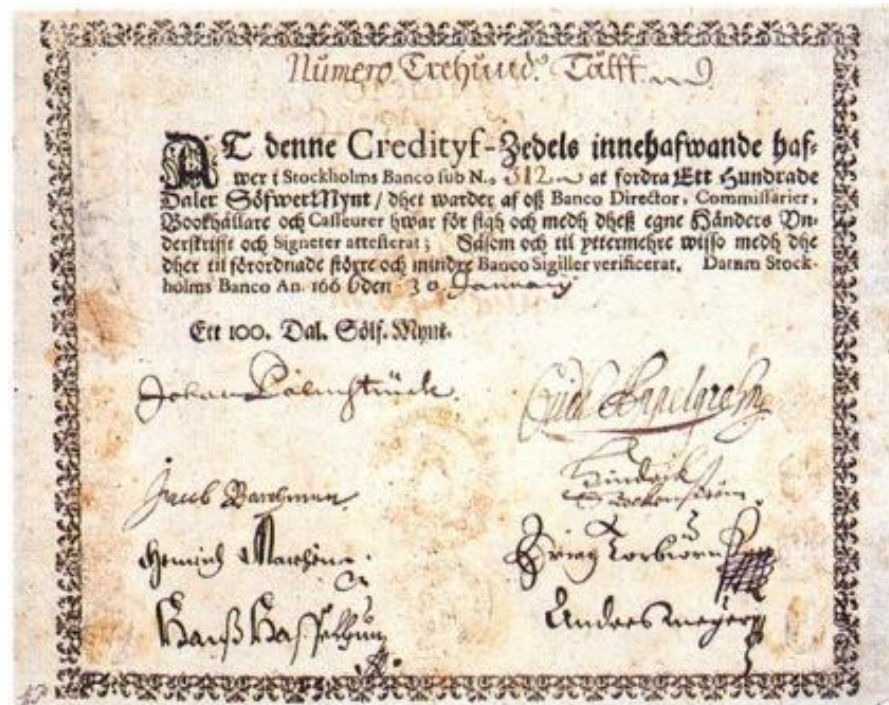 Numero Trehund: Tålff
AT denne Credityf-Zedels innehafwande haf-
wer i Stockholms Banco sub N.o 312 at fordra Ett Hundrade
Daler SöfwerMynt / dhet warder af oß Banco Director, Commissarier,
Bookhållare och Casseurer hwar för sigh och medh dheß egne Händers Vn-
derskrifft och Signeter attesterat; Såsom och til yttermehre wisso medh dhe
dher til förordnade större och mindre Banco Sigiller verificerat. Datum Stock-
holms Banco An. 1666 den 30 January
Ett 100. Dal. Sölf. Mynt.
Johan Palmstruch
Hindrik
Jacob Barchman
Hanß Hasselhun
Anders meyer